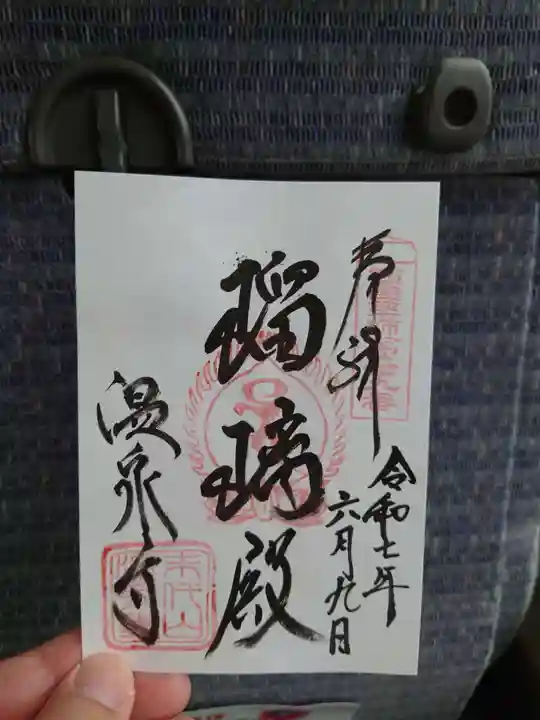 奉拝
令和七年
六月九日
瑠璃殿
温泉寺
末代山